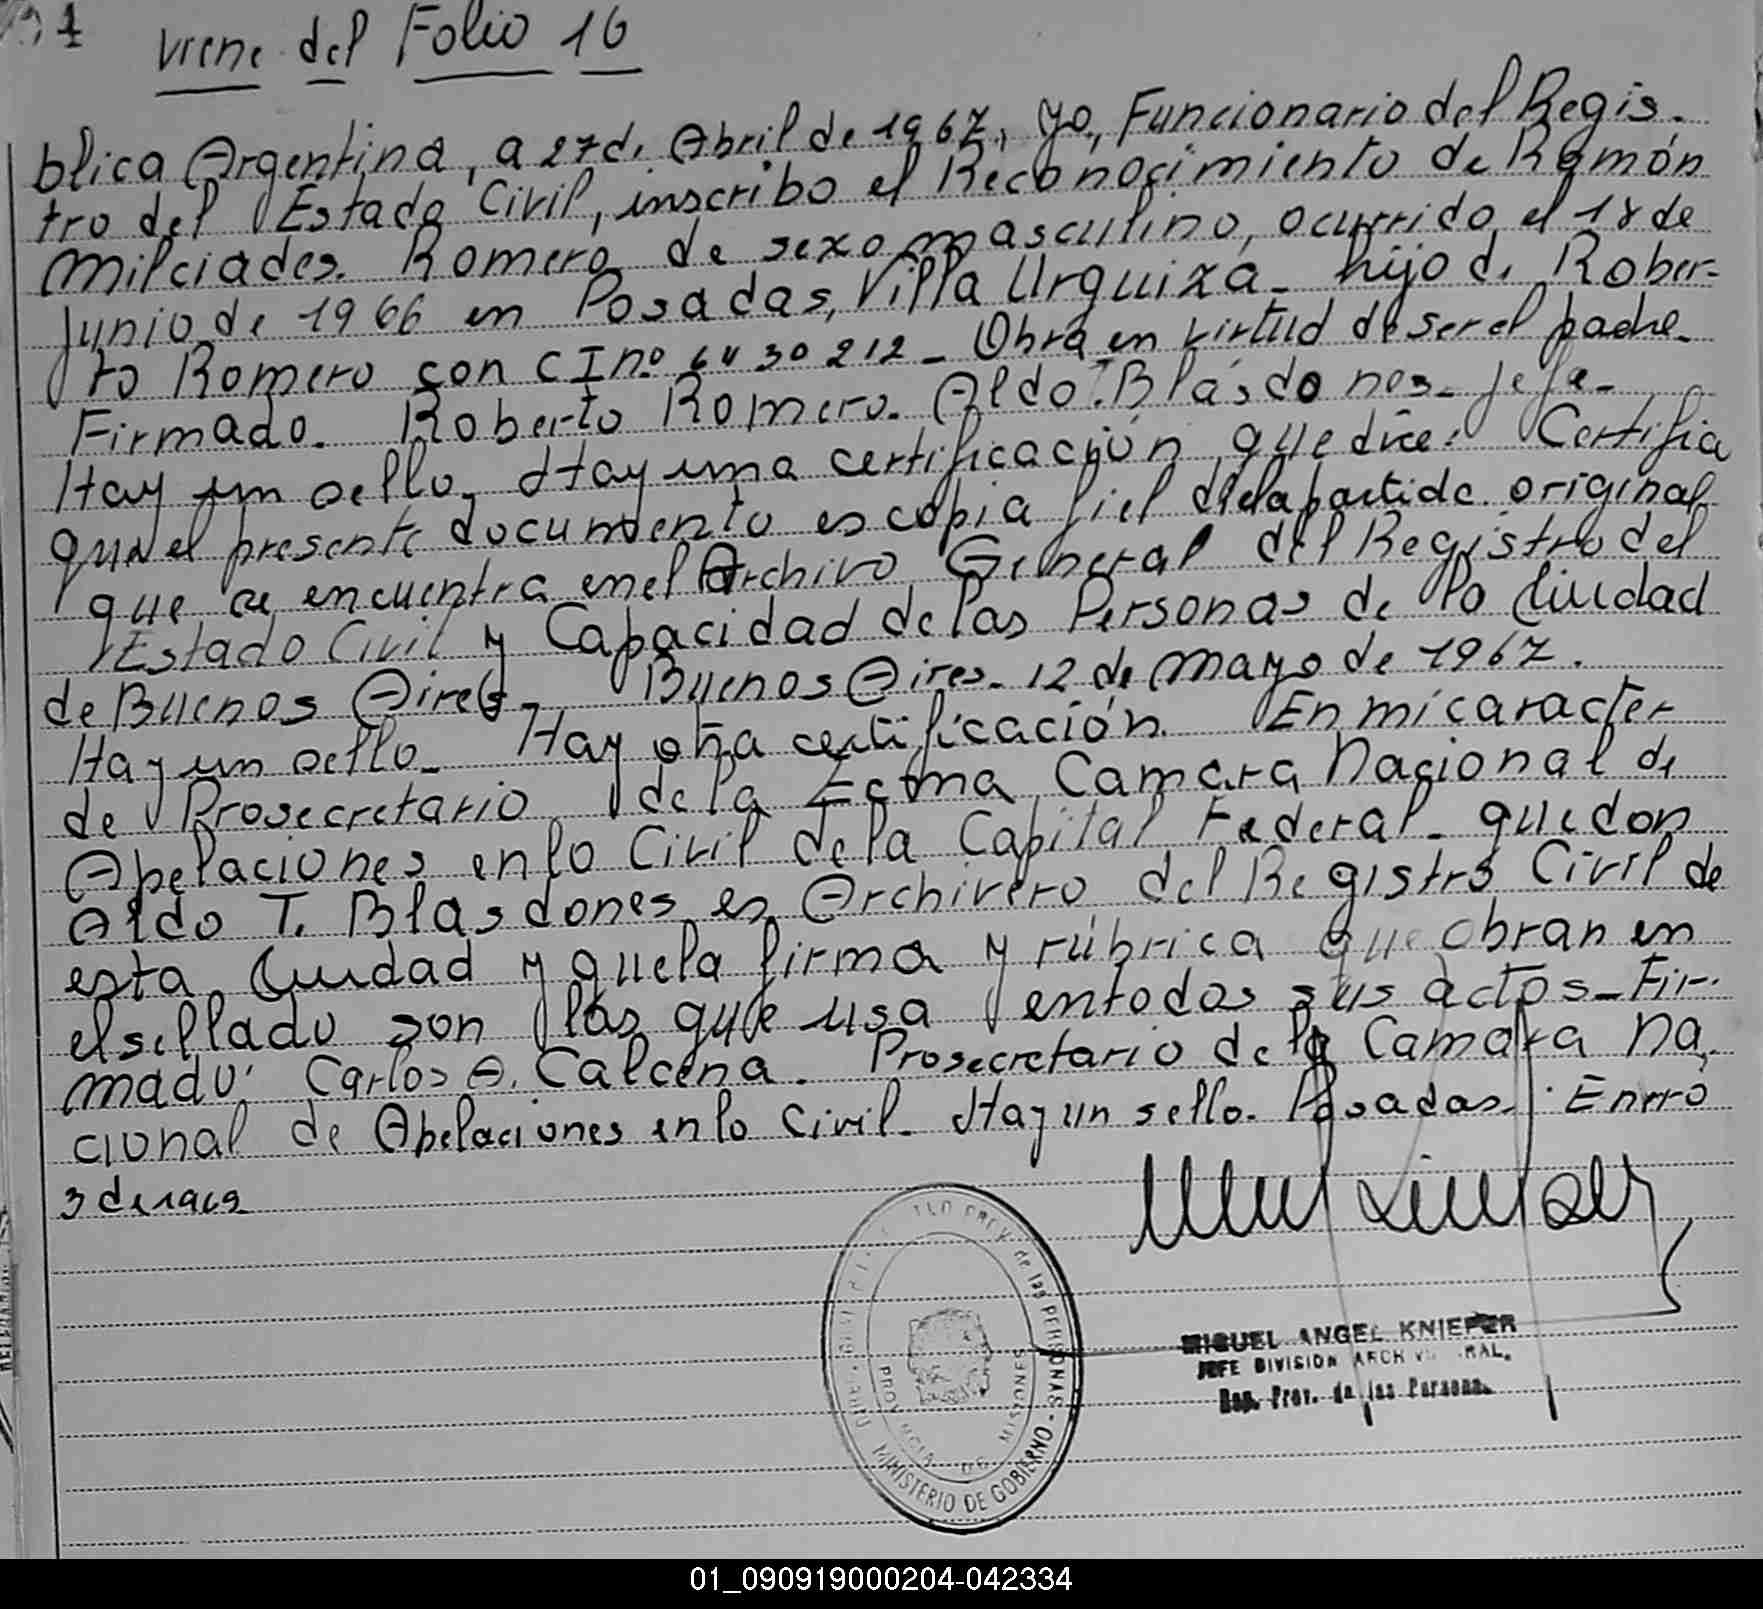 viene del Folio 16
blica Argentina, a 27 de Abril de 1967, yo, Funcionario del Regis-
tro del Estado Civil, inscribo el Reconocimiento de Ramón
Milciades Romero de sexo masculino, ocurrido el 18 de
Junio de 1966 en Posadas, Villa Urquiza - hijo de Rober-
to Romero con CI nº 6430212 - Obra en virtud de ser el padre.
Firmado. Roberto Romero. Aldo T. Blasdones - Jefe -
Hay un sello. Hay una certificación que dice: Certifica
que el presente documento es copia fiel de la partida original
que se encuentra en el Archivo General del Registro del
Estado Civil y Capacidad de las Personas de la Ciudad
de Buenos Aires - Buenos Aires - 12 de Mayo de 1967.
Hay un sello - Hay otra certificación. En mi caracter
de Prosecretario de la Ecma Camara Nacional de
Apelaciones en lo Civil de la Capital Federal - que don
Aldo T. Blasdones es Archivero del Registro Civil de
esta Ciudad y que la firma y rúbrica que obran en
el sellado son las que usa en todos sus actos - Fir-
mado: Carlos A. Calcena. Prosecretario de la Camara Na-
cional de Apelaciones en lo Civil. Hay un sello. Posadas. Enero
3 de
MIGUEL ANGEL KNIEPER
JEFE DIVISION ARCH
Reg. Prov. de las Personas
de las PERSONAS - MINISTERIO DE GOBIERNO
PROVINCIA DE MISIONES
01_090919000204-042334